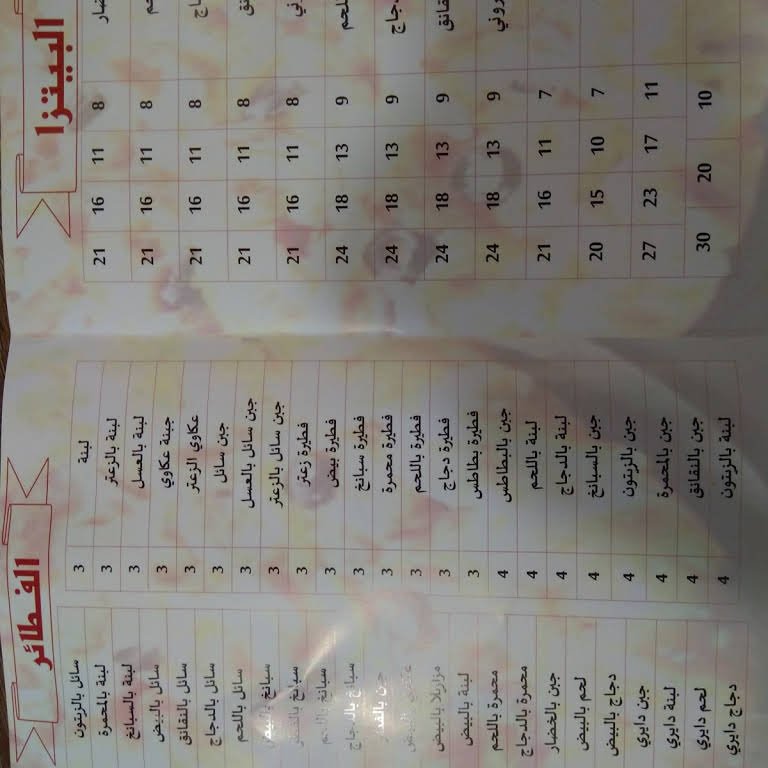 البيتزا
8 11 16 21
8 11 16 21
8 11 16 21
8 11 16 21
8 11 16 21
9 13 18 24
9 13 18 24
9 13 18 24
9 13 18 24
7 11 16 21
7 10 15 20
11 17 23 27
10 20 30
الفطائر
لبنة 3
لبنة بالزعتر 3
لبنة بالعسل 3
جبنة عكاوي 3
عكاوي الزعتر 3
جبن سائل 3
جبن سائل بالعسل 3
جبن سائل بالزعتر 3
فطيرة زعتر 3
فطيرة بيض 3
فطيرة سبانخ 3
فطيرة محمرة 3
فطيرة باللحم 3
فطيرة دجاج 3
فطيرة بطاطس 3
جبن بالبطاطس 4
لبنة باللحم 4
لبنة بالدجاج 4
جبن بالسبانخ 4
جبن بالزيتون 4
جبن بالمحمرة 4
جبن بالنقانق 4
لبنة بالزيتون 4
سائل بالزيتون
لبنة بالمحمرة
لبنة بالسبانخ
سائل بالبيض
سائل بالنقانق
سائل بالدجاج
سائل باللحم
سبانخ بالبيض
سبانخ
سبانخ باللحم
سبانخ بالدجاج
جبن
مزاريلا بالبيض
لبنة بالبيض
محمرة باللحم
محمرة بالدجاج
جبن بالخضار
لحم بالبيض
دجاج بالبيض
جبن دايري
لبنة دايري
لحم دايري
دجاج دايري